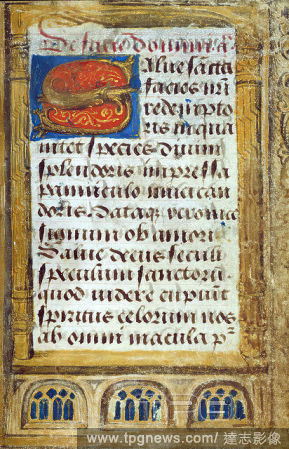 De sancta
Salve sancta
facies nrī
redemptoris
ris in qua
nitet species divini
splendoris impressa
panniculo nivei can
doris. Dataq; veronice
signum ob amoris
Salve decus seculi
speculum sanctorū.
quod videre cupiūt
spiritus celorum nos
ab omni macula p
www.tpgnews.com/ 達志影像